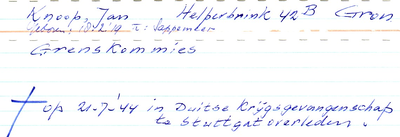 Knoop, Jan Helperbrink 42B Gron
Geboren: 18.12.19 te: Sappemeer
Grenskommies
op 21-7-'44 in Duitse krijgsgevangenschap
te Stuttgat overleden.